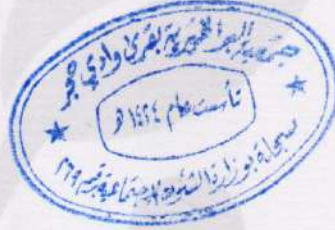 جمعية البر الخيرية بقرى وادي حجر
تأسست عام ١٤٢٤ هـ
مسجلة بوزارة الشئون الاجتماعية برقم ٢٦٩